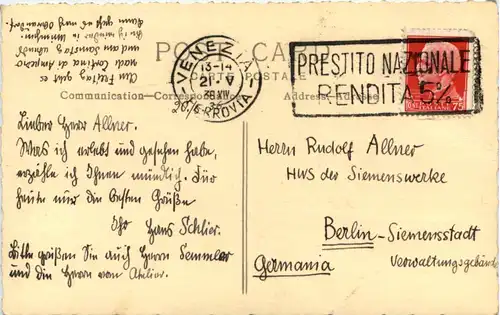 POST CARD
CARTE POSTALE
Communication—Correspondance
Address—Adresse
VENEZIA
13-14
21·V
36 XIV
FERROVIA
PRESTITO NAZIONALE
RENDITA 5%
75
Lieber Herr Allner.
Was ich erlebt und gesehen habe,
erzähle ich Ihnen mündlich. Für
heute nur die besten Grüße
Ihr Hans Schlier.
Bitte grüßen Sie auch Herrn Semmler
und die Herrn vom Atelier.
Am Freitag geht es
nach Cortina di Ampezzo
und am Samstag abend
bin ich wieder in München.
Dann geht es nach
Herrn Rudolf Allner
HWS der Siemenswerke
Berlin-Siemensstadt
Verwaltungsgebäude
Germania